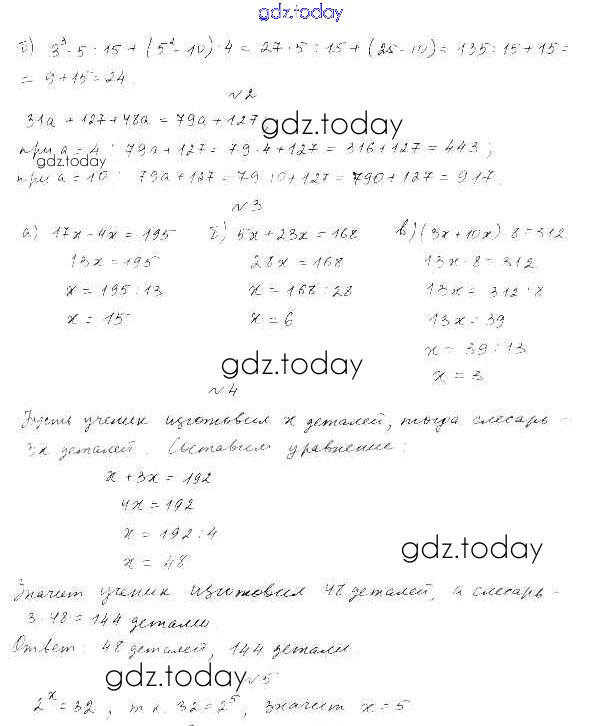 gdz.today
б) 3³ · 5 : 15 + (5² - 10) · 4 = 27 · 5 : 15 + (25 - 10) = 135 : 15 + 15 =
= 9 + 15 = 24.
№2
31a + 127 + 48a = 79a + 127
gdz.today
при a = 4 : 79a + 127 = 79 · 4 + 127 = 316 + 127 = 443 ;
gdz.today
при a = 10 : 79a + 127 = 79 · 10 + 127 = 790 + 127 = 917.
№3
а) 17x - 4x = 195 б) 5x + 23x = 168 в) (3x + 10x) · 8 = 312
13x = 195 28x = 168 13x · 8 = 312
x = 195 : 13 x = 168 : 28 13x = 312 : 8
x = 15 x = 6 13x = 39
x = 39 : 13
gdz.today
x = 3
№4
Пусть ученик изготовил x деталей, тогда слесарь -
3x деталей. Составим уравнение:
x + 3x = 192
4x = 192
x = 192 : 4
gdz.today
x = 48
Значит ученик изготовил 48 деталей, а слесарь -
3 · 48 = 144 детали.
Ответ: 48 деталей, 144 детали.
gdz.today
№5
2ˣ = 32, т.к. 32 = 2⁵, значит x = 5